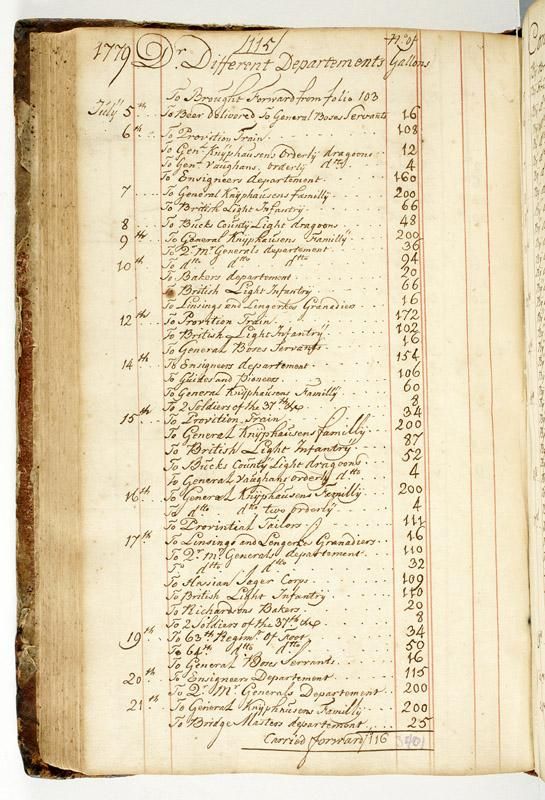 /115/
1779 Dr. Different Departements No. of Gallons
To Brought Forward from folio 103
July 5th To Beer Delivered To General Boses Servants 16
6th To Provition Train 108
To Genl. Knÿphausens Orderlÿ dragoons 12
To Genl. Vaughans, orderlÿ dtto 4
To Ensigneers departement 160
7 To General Knÿphausens familly 200
To British Light Infantry 66
8 To Bucks County Light dragoons 48
9th To General Knyphausens Familly 200
To 2r. Mr. Generals departement 36
10th To dtto dtto dtto 94
To Bakers departement 20
To British Light Infantry 66
To Linsings and Lingerkes Granadiers 16
12th To Provition Train 172
To British Light Infantrÿ 102
To General Boses Servants 16
14th To Ensigneers departement 154
To Guides and Pioneers 106
To General Knÿphausens Familly 60
To 2 Soldiers of the 37th 8
15th To Provition Train 34
To General Knÿphausens familly 200
To British Light Infantrÿ 87
To Bucks County Light dragoons 52
To General Vaughans orderly dtto 4
16th To General Knÿphausens Familly 200
To dtto dtto two orderly 4
To Provintial Tailors 111
17th To Linsings and Lengerkes Granadiers 16
To 2r. Mr. Generals departement 110
To dtto dtto 32
To Hassian Jager Corps 109
To British Light Infantry 110
To Richardsons Bakers 20
To 2 Soldiers of the 37th 8
19th To 63th Regimt. Of foot 34
To 64th dtto dtto 50
To General Boses Servants 16
20th To Ensigneers Departement 115
To 2r. Mr. Generals Departement 200
21th To General Knÿphausens Familly 200
To Bridge Masters departement 25
Carried forward /116 3401